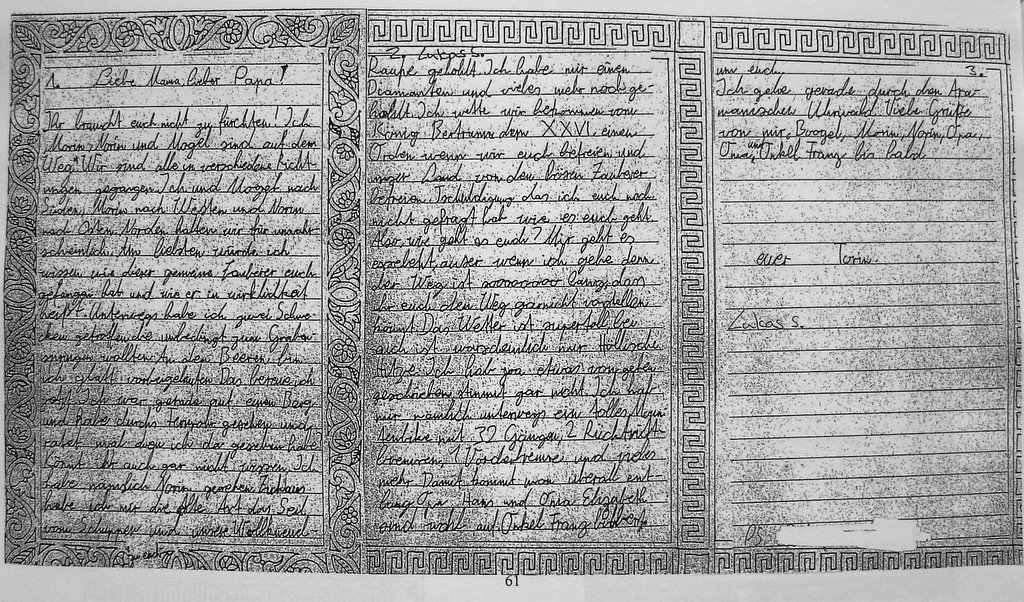 1. Liebe Mama, lieber Papa!
Ihr braucht euch nicht zu fürchten! Ich
Morin, Norin und Mogel sind auf dem
Weg* Wir sind alle in verschiedene Richt
ungen gegangen. Ich und Mogel nach
Süden, Morin nach Westen und Norin
nach Osten. Norden halten wir für unwahr
scheinlich. Am liebsten würde ich
wissen wie dieser gemeine Zauberer euch
gefangen hat und wie er in wirklichkeit
heißt. Unterwegs habe ich zwei Schne
cken getroffen die unbedingt zum Graben
springen wollten. An den Beeren bin
ich glatt vorbeigelaufen Das bereue ich
Ich war gerade auf einen Berg
und habe durchs Fernrohr gesehen und
ratet mal wen ich da gesehen hab
Könnt ihr auch gar nicht wissen. Ich
habe nämlich Norin gesehen
habe ich mir die Axt das Seil
vom Schuppen und unsere
zu euch
2 Lukas S.
Raupe geholt. Ich habe mir einen
Diamanten und vieles mehr noch ge-
holt. Ich wette wir bekommen vom
König Bertramm dem XXVI einen
Orden wenn wir euch befreien und
unser Land von dem bösen Zauberer
befreien. Tschuldigung das ich euch noch
nicht gefragt hab wie es euch geht.
Also, wie geht es euch? Mir geht es
auser wenn ich gehe denn
der Weg ist sooooooooo lang, das
ihr euch den Weg garnicht vorstellen
könnt. Das Wetter ist supertoll bei
euch ist warscheinlich nur Höllische
Hitze. Ich hab zwar etwas von gehen
geschrieben stimmt gar nicht. Ich hab
mir nämlich unterwegs ein tolles Moun
tenbike mit 32 Gängen, 2 Rücktritt-
bremsen, 1 Vorderbremse und vieles
mehr Damit kommt man überall ent
lang. Hans und Oma Elizabeth
sind wohl auf. Onkel Franz
3.
um euch.
Ich gehe gerade durch den Ara-
manischen Urwald. Viele Grüße
von mir, Boogel, Morin, Norin, Opa,
Oma, und Onkel Franz bis bald
euer Torin.
Lukas S.
PS:
61